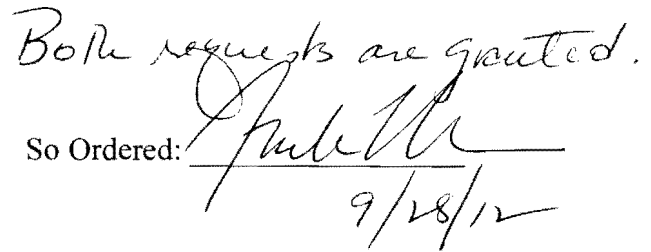 Both requests are granted.
So Ordered:
9/28/12